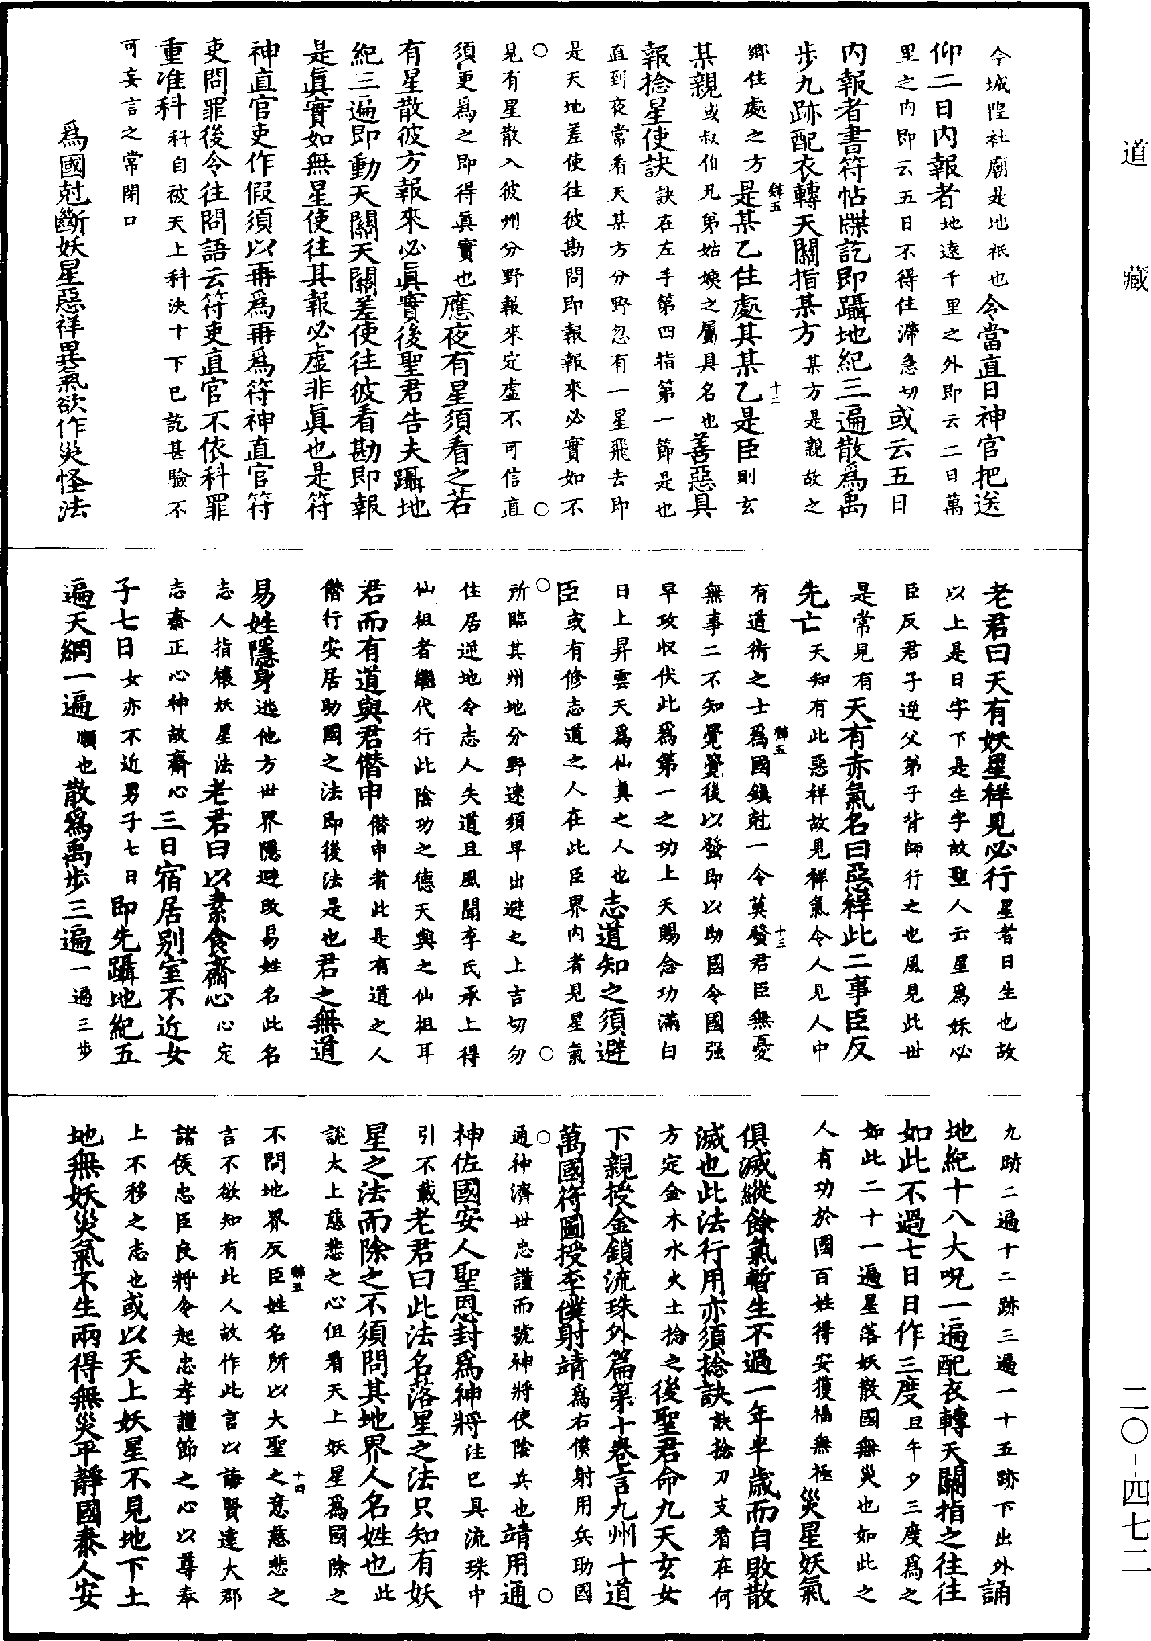 今城隍社廟是地祇也令當直日神官把送
仰二日內報者地遠千里之外即云二日萬
里之內即云五日不得住滯急切或云五日
內報者書符帖牒訖即躡地紀三遍散為禹
步九跡配衣轉天關指某方某方是親故之
鄉住處之方是某乙住處其某乙是臣則玄
某親或叔伯兄弟姑姨之屬具名也善惡具
報捻星使訣訣在左手第四指第一節是也
直到夜常看天某方分野忽有一星飛去即
是天地差使往彼勘問即報報來必實如不
見有星散入彼州分野報來定虛不可信直
須更為之即得真實也應夜有星須看之若
有星散彼方報來必真實後聖君告夫躡地
紀三遍即動天關天關差使往彼看勘即報
是真實如無星使往其報必虛非真也是符
神直官吏作假須以再為再為符神直官符
吏問罪後令往問語云符吏直官不依科罪
重准科科自被天上科決十下已訖甚驗不
可妄言之常閉口
為國剋斷妖星惡祥異氣欲作災怪法
老君曰天有妖星祥見必行星者日生也故
以上是日字下是生字故聖人云星為妖必
臣反君子逆父弟子背師行之也風見此世
是常見有天有赤氣名曰惡祥此二事臣反
先亡天知有此惡祥故見祥氣令人見人中
有道術之士為國鎮剋一令莫發君臣無憂
無事二不知覺覺後以發即以助國令國強
早攻收伏此為第一之功上天賜念功滿白
日上昇雲天為仙真之人也志道知之須避
臣或有修志道之人在此臣界內者見星氣
所臨其州地分野速須早出避之上吉切勿
住居逆地令志人失道且風聞李氏承上得
仙祖者繼代行此陰功之德天與之仙祖耳
君而有道與君僭申僭申者此是有道之人
僭行安居助國之法即後法是也君之無道
易姓隱身逃他方世界隱避改易姓名此名
志人指攘妖星法老君曰以素食齋心心定
志齋正心神故齋心三日宿居別室不近女
子七日女亦不近男子七日即先躡地紀五
遍天綱一遍順也散為禹步三遍一遍三步
九跡二遍十二跡三遍一十五跡下出外誦
地紀十八大呪一遍配衣轉天關指之往往
如此不過七日日作三度旦午夕三度為之
如此二十一遍星落妖散國無災也如此之
人有功於國百姓得安獲福無極災星妖氣
俱滅縱餘氣暫生不過一年半歲而自敗散
滅也此法行用亦須捻訣訣捻刀支看在何
方定金木水火土捻之後聖君命九天玄女
下親授金鎖流珠外篇第十卷言九州十道
萬國符圖授李僕射靖為右僕射用兵助國
通神濟世忠謹而號神將使陰兵也靖用通
神佐國安人聖恩封為神將注已具流珠中
引不載老君曰此法名落星之法只知有妖
星之法而除之不須問其地界人名姓也此
說太上慈悲之心但看天上妖星為國除之
不問地界反臣姓名所以大聖之意慈悲之
言不欲知有此人故作此言以誨賢達大郡
諸侯忠臣良將令起忠孝謹節之心以尊奉
上不移之志也或以天上妖星不見地下土
地無妖災氣不生兩得無災平靜國泰人安
斜五
十二
斜五
十三
斜五
十四
道藏
二〇-四七二